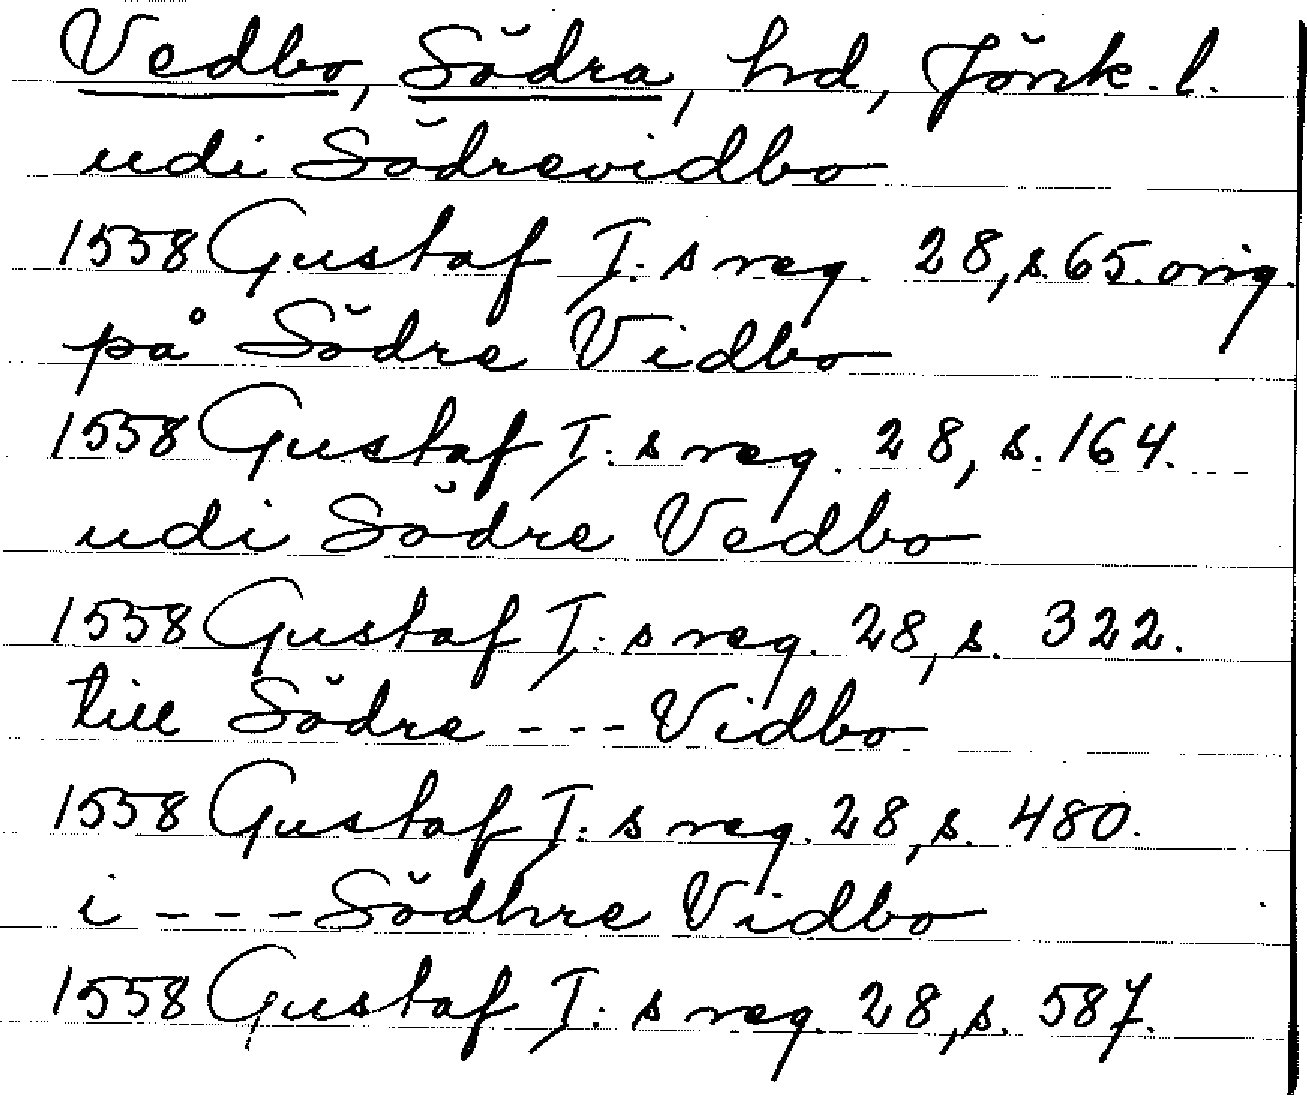 Vedbo, Södra, hd, Jönk. l.
udi Södrevidbo
1558 Gustaf I:s reg. 28, s. 65. orig.
på Södre Vidbo
1558 Gustaf I:s reg. 28, s. 164.
udi Södre Vedbo
1558 Gustaf I:s reg. 28, s. 322.
till Södre --- Vidbo
1558 Gustaf I:s reg. 28, s. 480.
i --- Södhre Vidbo
1558 Gustaf I:s reg. 28, s. 587.